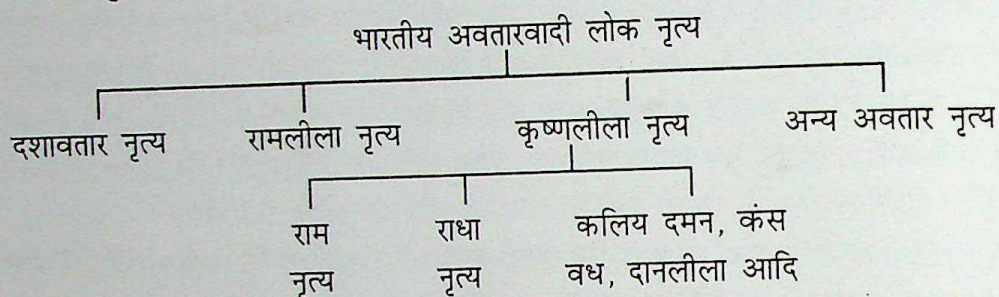 भारतीय अवतारवादी लोक नृत्य
दशावतार नृत्य रामलीला नृत्य कृष्णलीला नृत्य अन्य अवतार नृत्य
राम राधा कलिय दमन, कंस
नृत्य नृत्य वध, दानलीला आदि